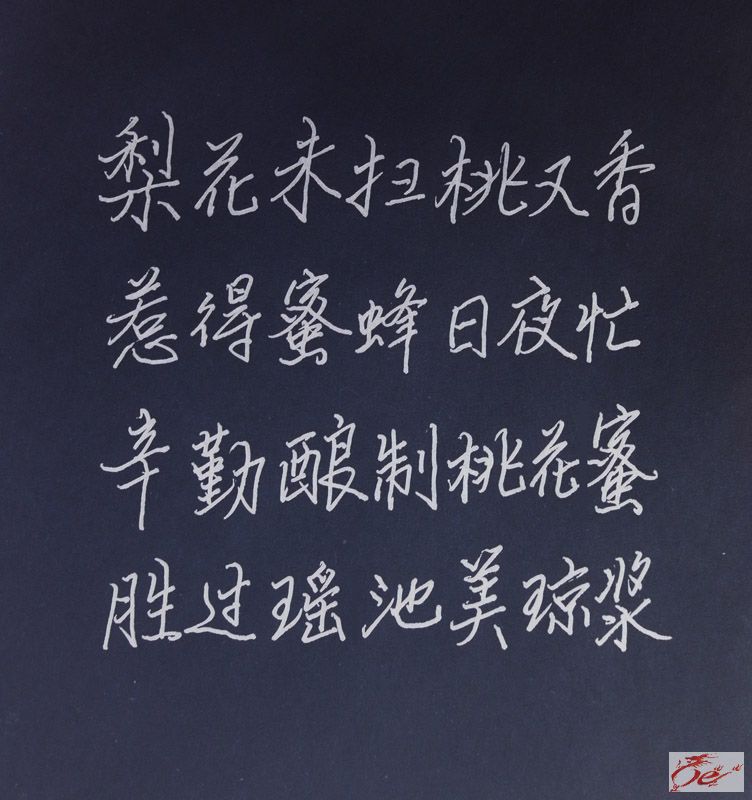 梨花未扫桃又香
惹得蜜蜂日夜忙
辛勤酿制桃花蜜
胜过瑶池美琼浆